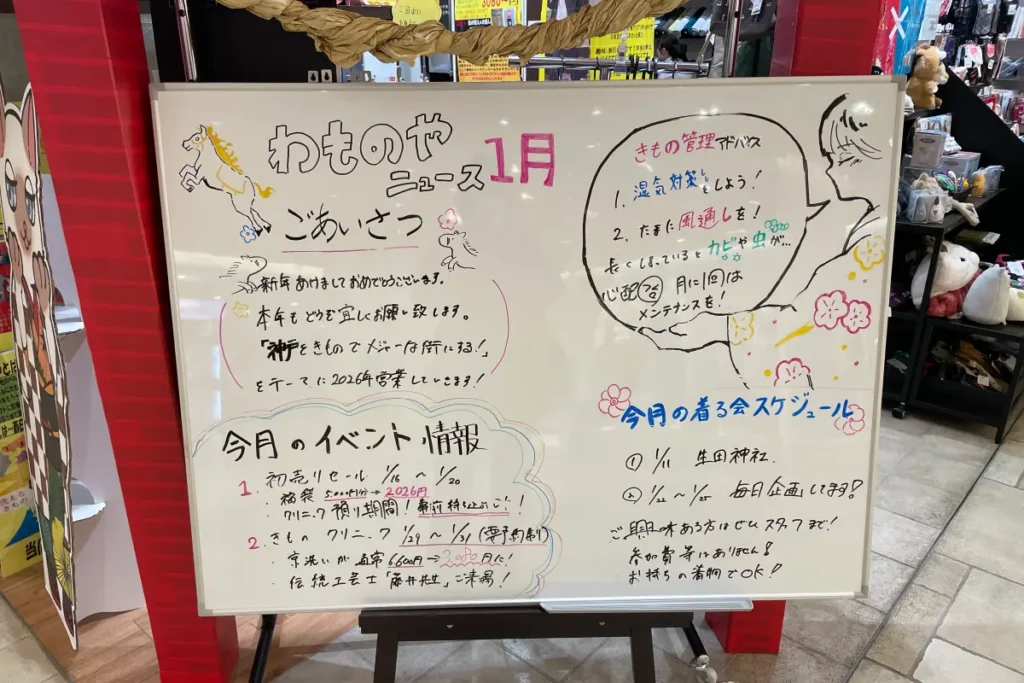 わものや
ニュース 1月
ごあいさつ
新年あけましておめでとうございます。
本年もどうぞ宜しくお願い致します。
「神戸をきものでメジャーな街にする!」
をテーマに2026年営業していきます!
今月のイベント情報
1. 初売りセール 1/16 〜 1/20
・福袋 5,000円分→2026円
・クリニック預り期間!事前持ち込み
2. きものクリニック 1/29 〜 1/31 (要予約制)
・京洗いが通常6,600円→
・伝統工芸士「藤井先生」ご来場!
きもの管理アドバイス
1. 湿気対策をしよう!
2. たまに風通しを!
長くしまっているとカビや虫が…
心配 月に1回は
メンテナンスを!
今月の着る会スケジュール
① 1/11 生田神社
② 1/22〜1/25 毎日企画してます!
ご興味ある方はぜひスタッフまで!
参加費等はありません!
お持ちの着物でOK!